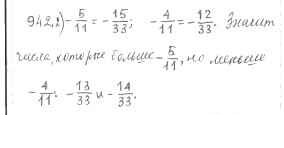 942.2) -5/11 = -15/33; -4/11 = -12/33. Значит
числа, которые больше -5/11, но меньше
-4/11: -13/33 и -14/33.